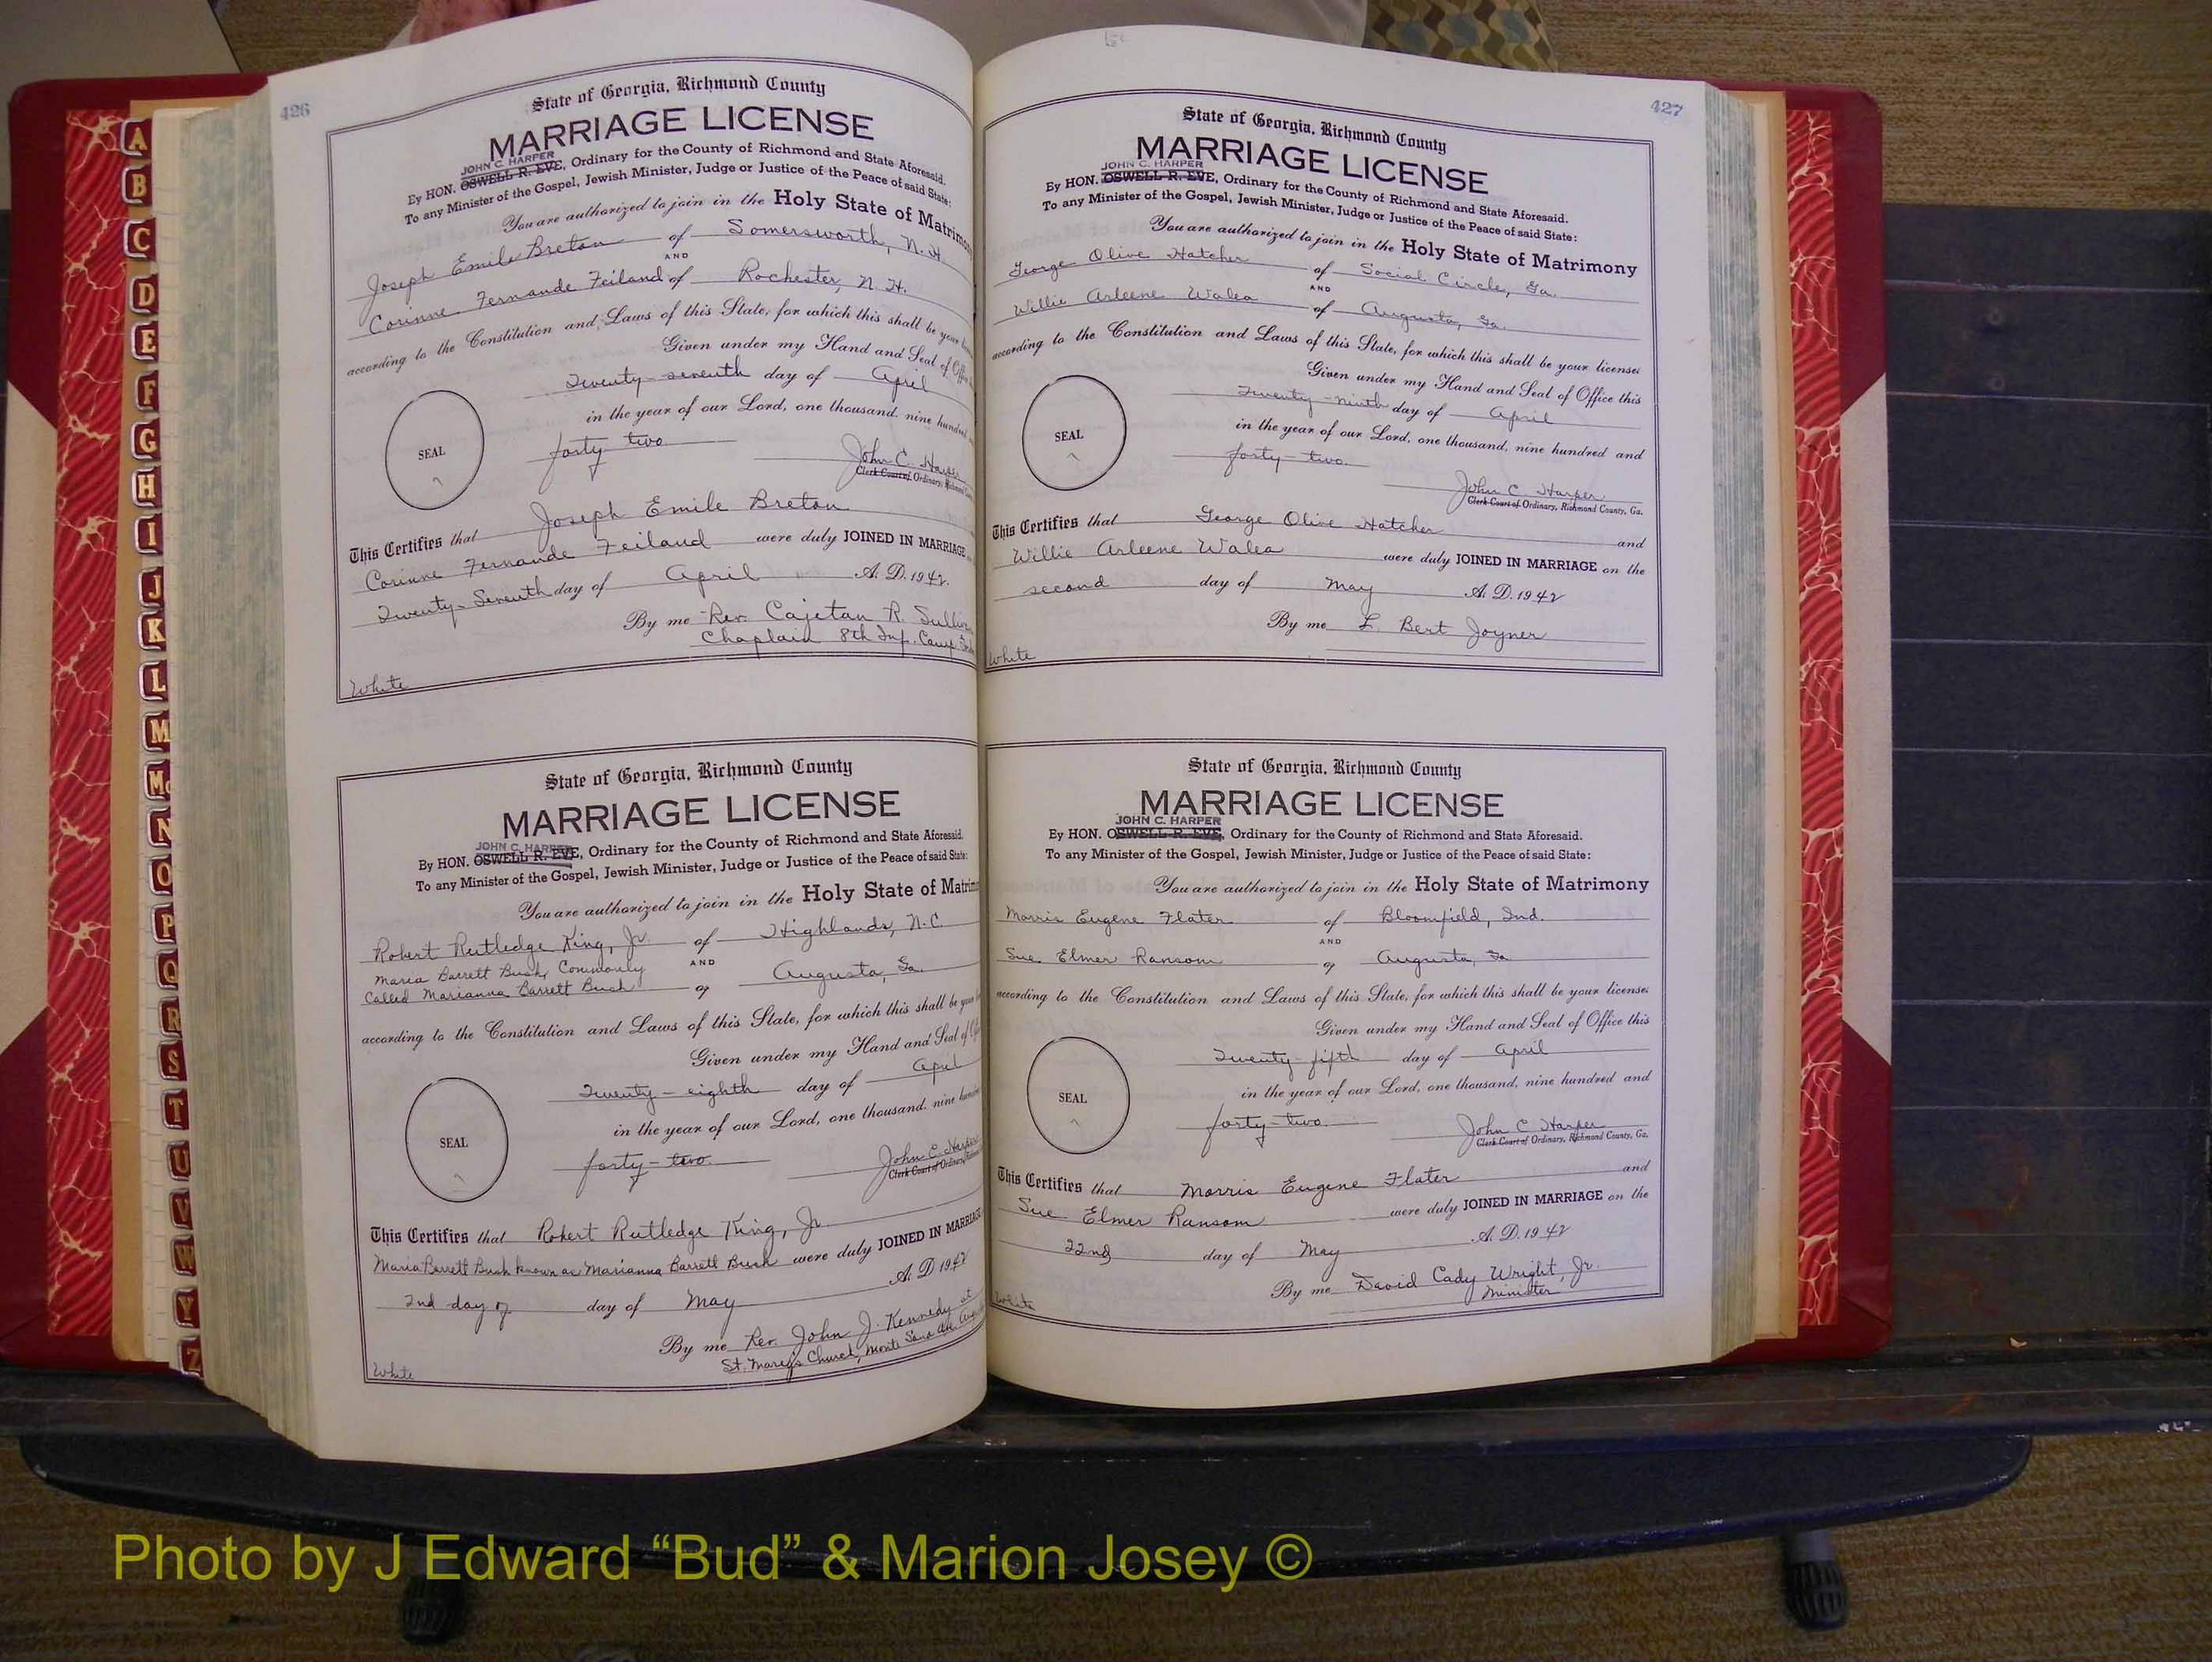 426
State of Georgia, Richmond County
MARRIAGE LICENSE
JOHN C. HARPER
By HON. OSWELL R. EVE, Ordinary for the County of Richmond and State Aforesaid.
To any Minister of the Gospel, Jewish Minister, Judge or Justice of the Peace of said State:
You are authorized to join in the Holy State of Matrimony
Joseph Emile Breton of Somersworth, N. H.
AND
Corinne Fernande Feiland of Rochester, N. H.
according to the Constitution and Laws of this State, for which this shall be your
Given under my Hand and Seal of Office
Twenty-seventh day of April
in the year of our Lord, one thousand, nine hundred
SEAL
forty two
John C. Harper
Clerk Court of Ordinary, Richmond
This Certifies that Joseph Emile Breton
Corinne Fernande Feiland were duly JOINED IN MARRIAGE
Twenty-Seventh day of April A. D. 1942.
By me Rev. Cajetan R. Sulliv
Chaplain 8th Inf. Camp
White
State of Georgia, Richmond County
MARRIAGE LICENSE
JOHN C. HARPER
By HON. OSWELL R. EVE, Ordinary for the County of Richmond and State Aforesaid.
To any Minister of the Gospel, Jewish Minister, Judge or Justice of the Peace of said State:
You are authorized to join in the Holy State of Matrim
Robert Rutledge King, Jr. of Highlands, N.C.
AND
Maria Barrett Bush, Commonly
Called Marianna Barrett Bush of Augusta, Ga.
according to the Constitution and Laws of this State, for which this shall be your
Given under my Hand and Seal of
Twenty-eighth day of April
in the year of our Lord, one thousand, nine hundred
SEAL
forty-two.
John C. Harper
Clerk Court of Ordinary,
This Certifies that Robert Rutledge King, Jr.
Maria Barrett Bush known as Marianna Barrett Bush were duly JOINED IN MARRIAGE
2nd day of day of May A. D. 1942
By me Rev. John J. Kennedy at
St. Mary's Church, Monte Sano Ave.
White
427
State of Georgia, Richmond County
MARRIAGE LICENSE
JOHN C. HARPER
By HON. OSWELL R. EVE, Ordinary for the County of Richmond and State Aforesaid.
To any Minister of the Gospel, Jewish Minister, Judge or Justice of the Peace of said State:
You are authorized to join in the Holy State of Matrimony
George Olive Hatcher of Social Circle, Ga.
AND
Willie Arleene Walea of Augusta, Ga.
according to the Constitution and Laws of this State, for which this shall be your license:
Given under my Hand and Seal of Office this
Twenty-ninth day of April
in the year of our Lord, one thousand, nine hundred and
SEAL
forty two.
John C. Harper
Clerk Court of Ordinary, Richmond County, Ga.
This Certifies that George Olive Hatcher and
Willie Arleene Walea were duly JOINED IN MARRIAGE on the
second day of May A. D. 1942
By me L. Bert Joyner
White
State of Georgia, Richmond County
MARRIAGE LICENSE
JOHN C. HARPER
By HON. OSWELL R. EVE, Ordinary for the County of Richmond and State Aforesaid.
To any Minister of the Gospel, Jewish Minister, Judge or Justice of the Peace of said State:
You are authorized to join in the Holy State of Matrimony
Morris Eugene Flater of Bloomfield, Ind.
AND
Sue Elmer Ransom of Augusta, Ga.
according to the Constitution and Laws of this State, for which this shall be your license:
Given under my Hand and Seal of Office this
Twenty-fifth day of April
in the year of our Lord, one thousand, nine hundred and
SEAL
forty-two.
John C Harper
Clerk Court of Ordinary, Richmond County, Ga.
This Certifies that Morris Eugene Flater and
Sue Elmer Ransom were duly JOINED IN MARRIAGE on the
22nd day of May A. D. 1942
By me David Cady Wright, Jr.
Minister
White
A
B
C
D
E
F
G
H
I
J
K
L
M
Mc
N
O
P
Q
R
S
T
U
V
W
Y
Z
Photo by J Edward “Bud” & Marion Josey ©